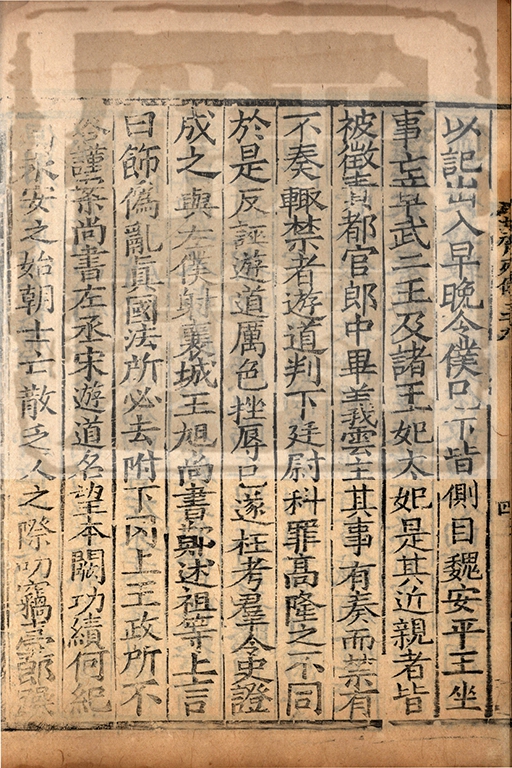 以記出入早晚令僕已下皆側目魏安平王坐
事亡章武二王及諸王妃太妃是其近親者皆
被徵責都官郎中畢義雲主其事有奏而禁有
不奏輙禁者遊道判下廷尉科罪高隆之不同
於是反誣遊道厲色挫辱已遂枉考羣令史證
成之與左僕射襄城王旭尚書鄭述祖等上言
曰飾僞亂眞國法所必去附下罔上王政所不
容謹案尚書左丞宋遊道名望本闕功績何紀
永安之始朝士亡散乏人之際叨竊臺郎躁